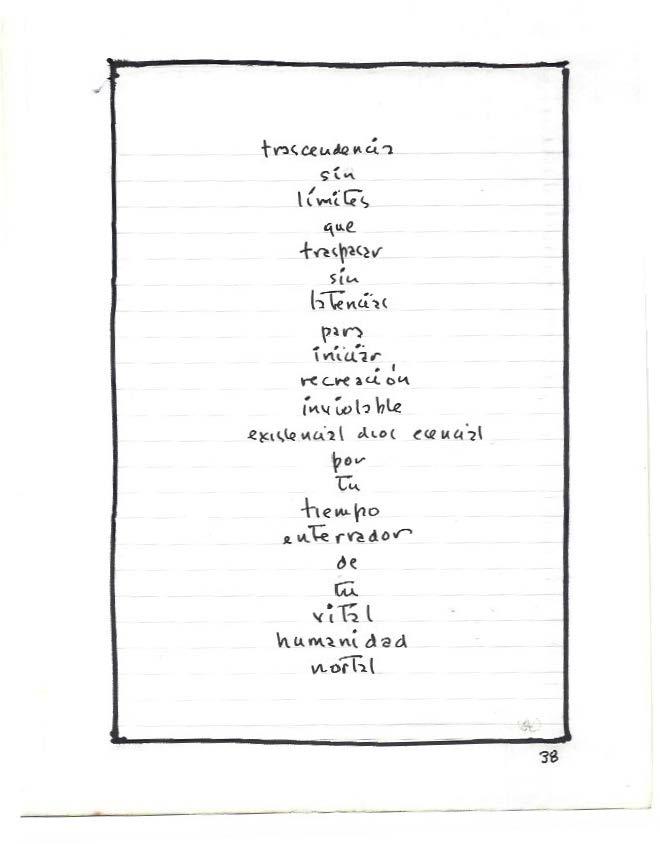 trascendencia
sin
límites
que
traspasar
sin
latencias
para
iniciar
recreación
inviolable
existencial dios esencial
por
tu
tiempo
enterrador
de
tu
vital
humanidad
mortal
38